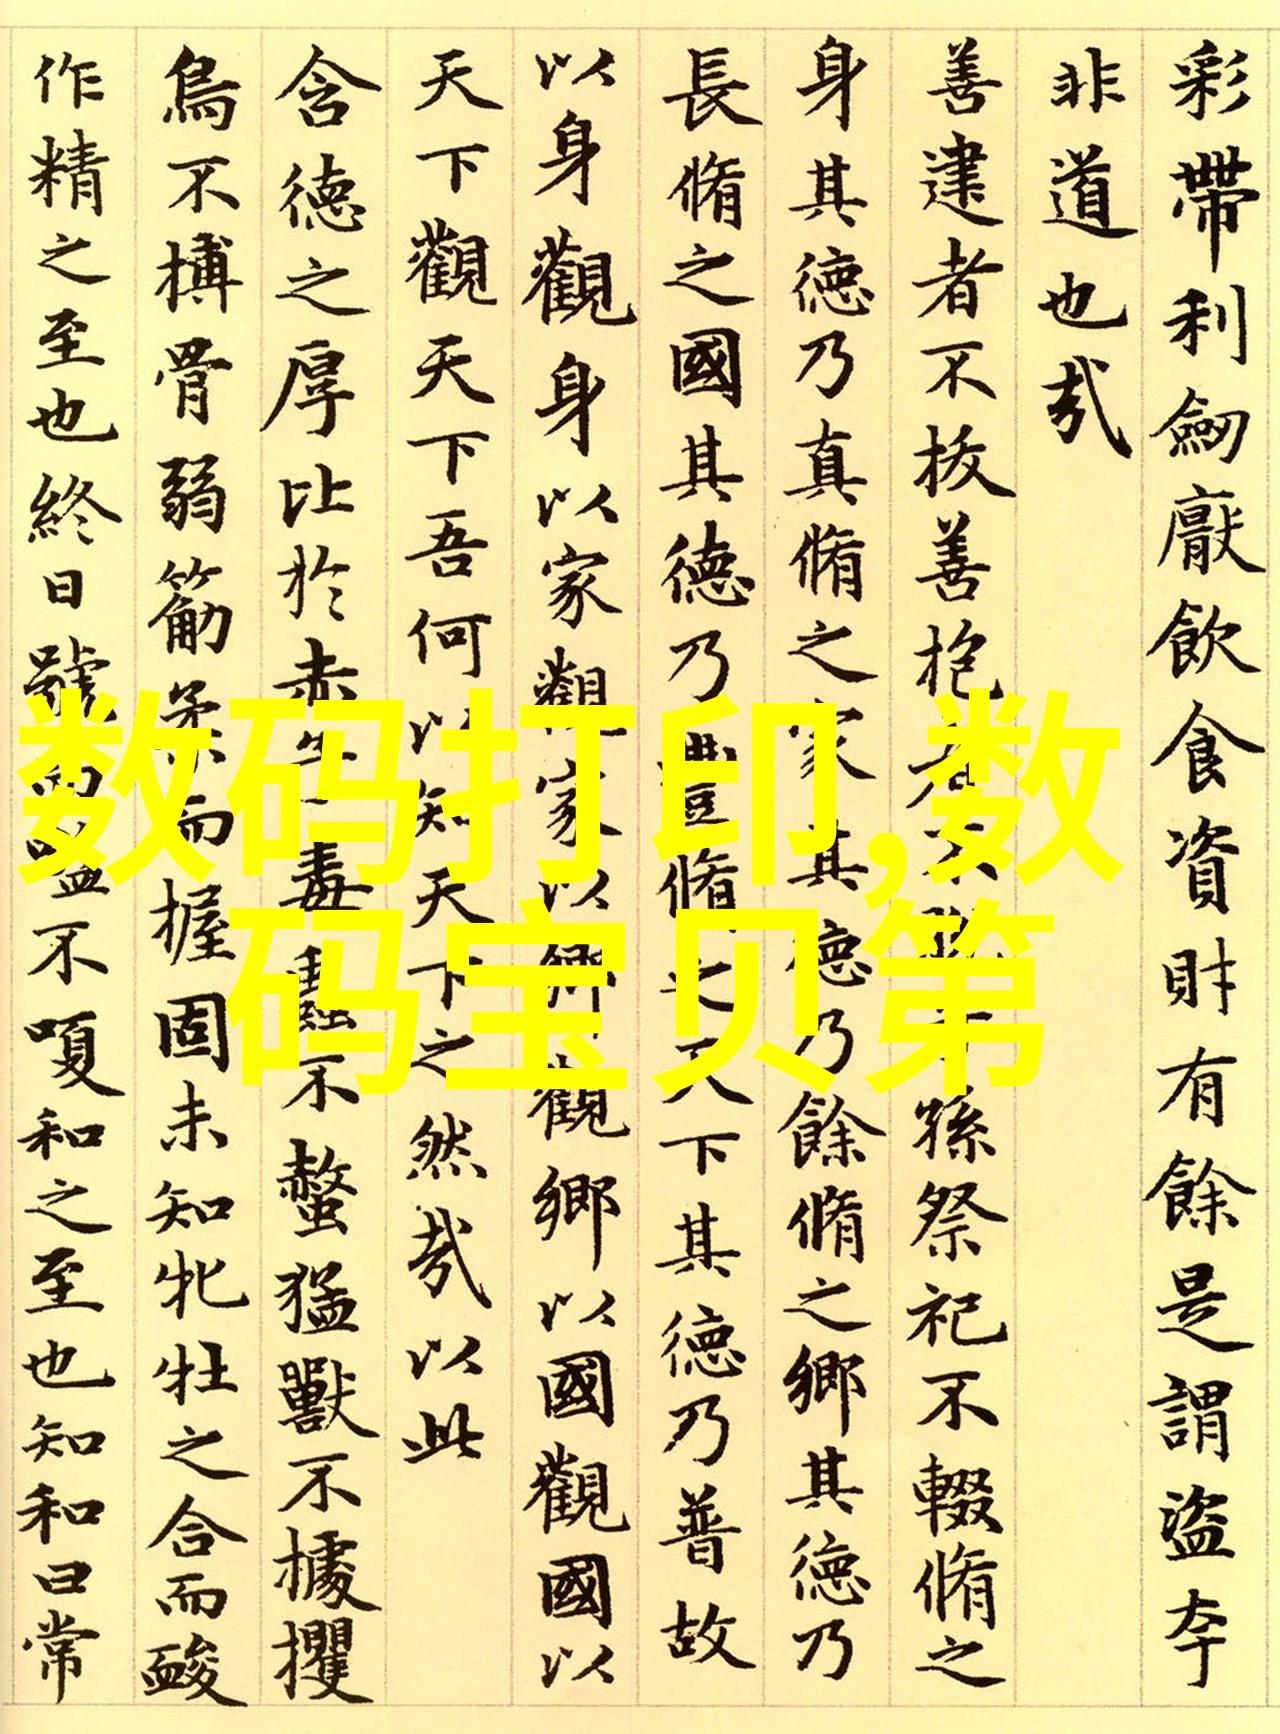 彩帶利劒厭飲食資財有餘是謂盜夸
非道也㢤
善建者不拔善抱者不脱子孫祭祀不輟脩之
身其德乃真脩之家其德乃餘脩之鄉其德乃
長脩之國其德乃豐脩之天下其德乃普故
以身觀身以家觀家以鄉觀鄉以國觀國以
天下觀天下吾何以知天下之然㢤以此
含德之厚比於赤子毒蟲不螫猛獸不據攫
鳥不搏骨弱筋柔而握固未知牝牡之合而酸
作精之至也終日號而嗌不嗄和之至也知和曰常
数码打印,数
码宝贝第